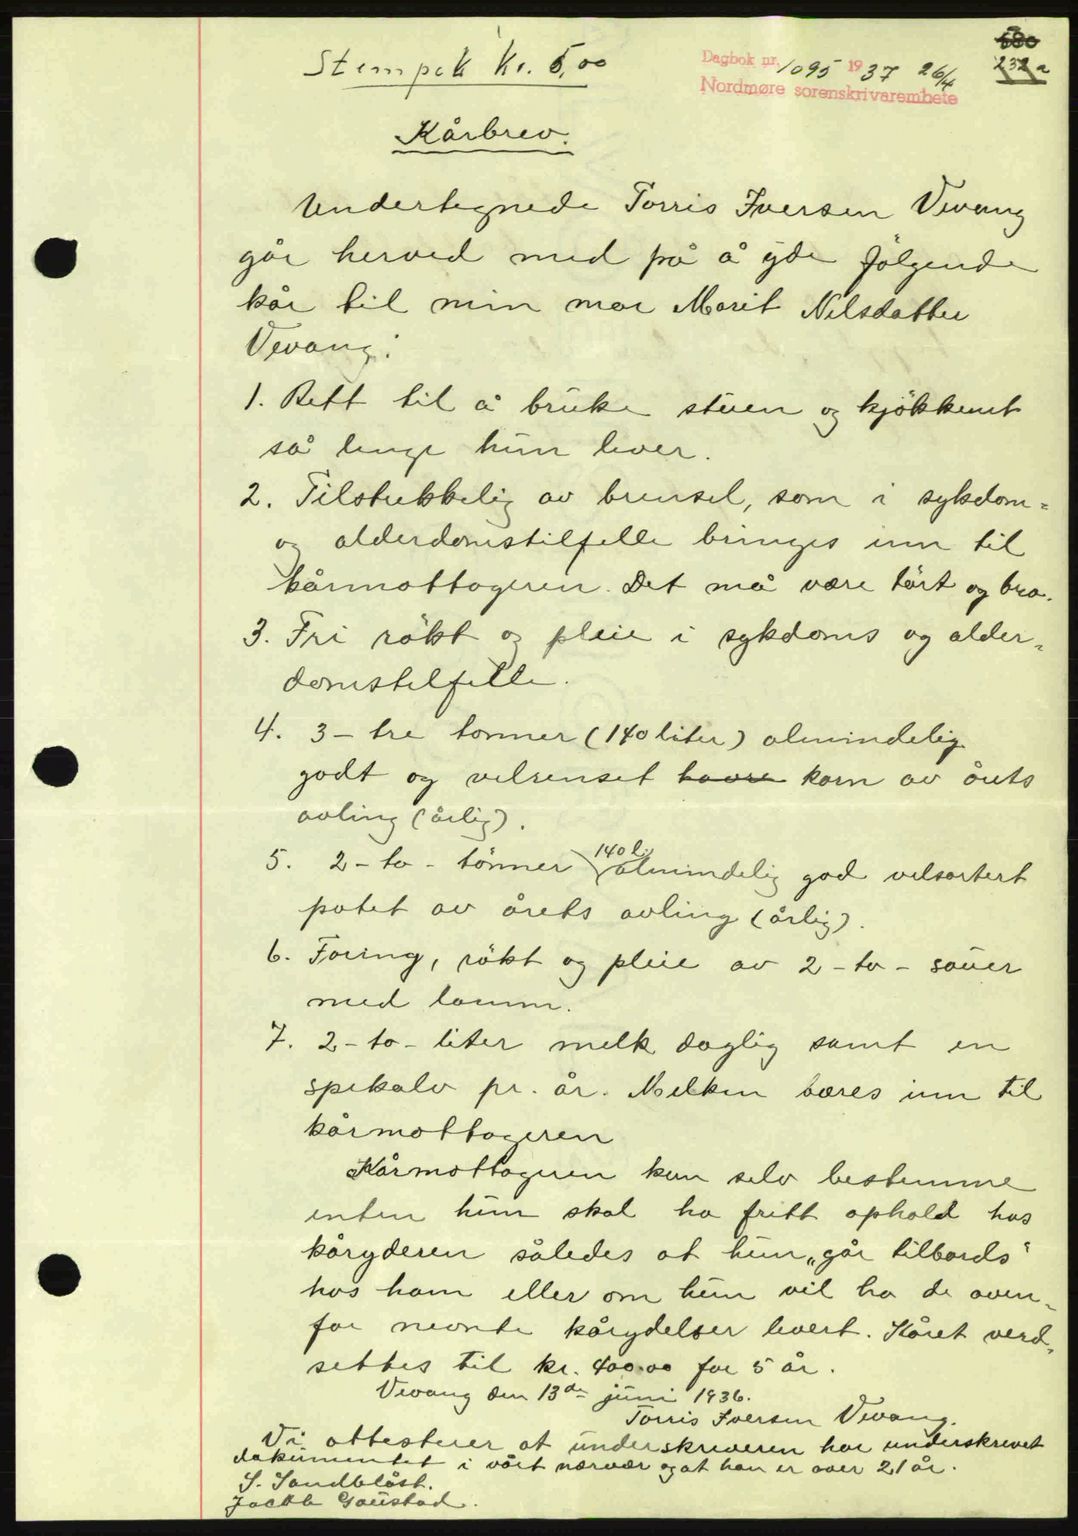 580
232a
Stempel kr. 5,00
Dagbok nr. 1095 1937 26/4
Nordmøre sorenskrivarembete
Kårbrev.
Undertegnede Torris Iversen Vevang
går herved med på å yde følgende
kår til min mor Marit Nilsdatter
Vevang:
1. Rett til å bruke stuen og kjøkkenet
så lenge hun lever.
2. Tilstrekkelig av brensel, som i sykdom=
og alderdomstilfelle bringes inn til
kårmottageren. Det må være tørt og bra.
3. Fri røkt og pleie i sykdoms og alder=
domstilfelle.
4. 3 - tre tonner (140 liter) almindelig
godt og velrenset havre korn av årets
avling (årlig).
5. 2 - to - tønner 140 l. almindelig god velsortert
potet av årets avling (årlig).
6. Foring, røkt og pleie av 2 - to - sauer
med lamm.
7. 2 - to - liter melk daglig samt en
spekalv pr. år. Melken bæres inn til
kårmottageren
Kårmottageren kan selv bestemme
enten hun skal ha fritt ophold hos
kåryderen således at hun „går tilbords“
hos ham eller om hun vil ha de oven=
for nevnte kårydelser levert. Kåret verd=
settes til kr. 400.00 for 5 år.
Vevang den 13de juni 1936.
Torris Iversen Vevang.
Vi attesterer at underskriveren har underskrevet
dokumentet i vårt nærvær og at han er over 21 år.
S. Sandblåst.
Jacob Gaustad.